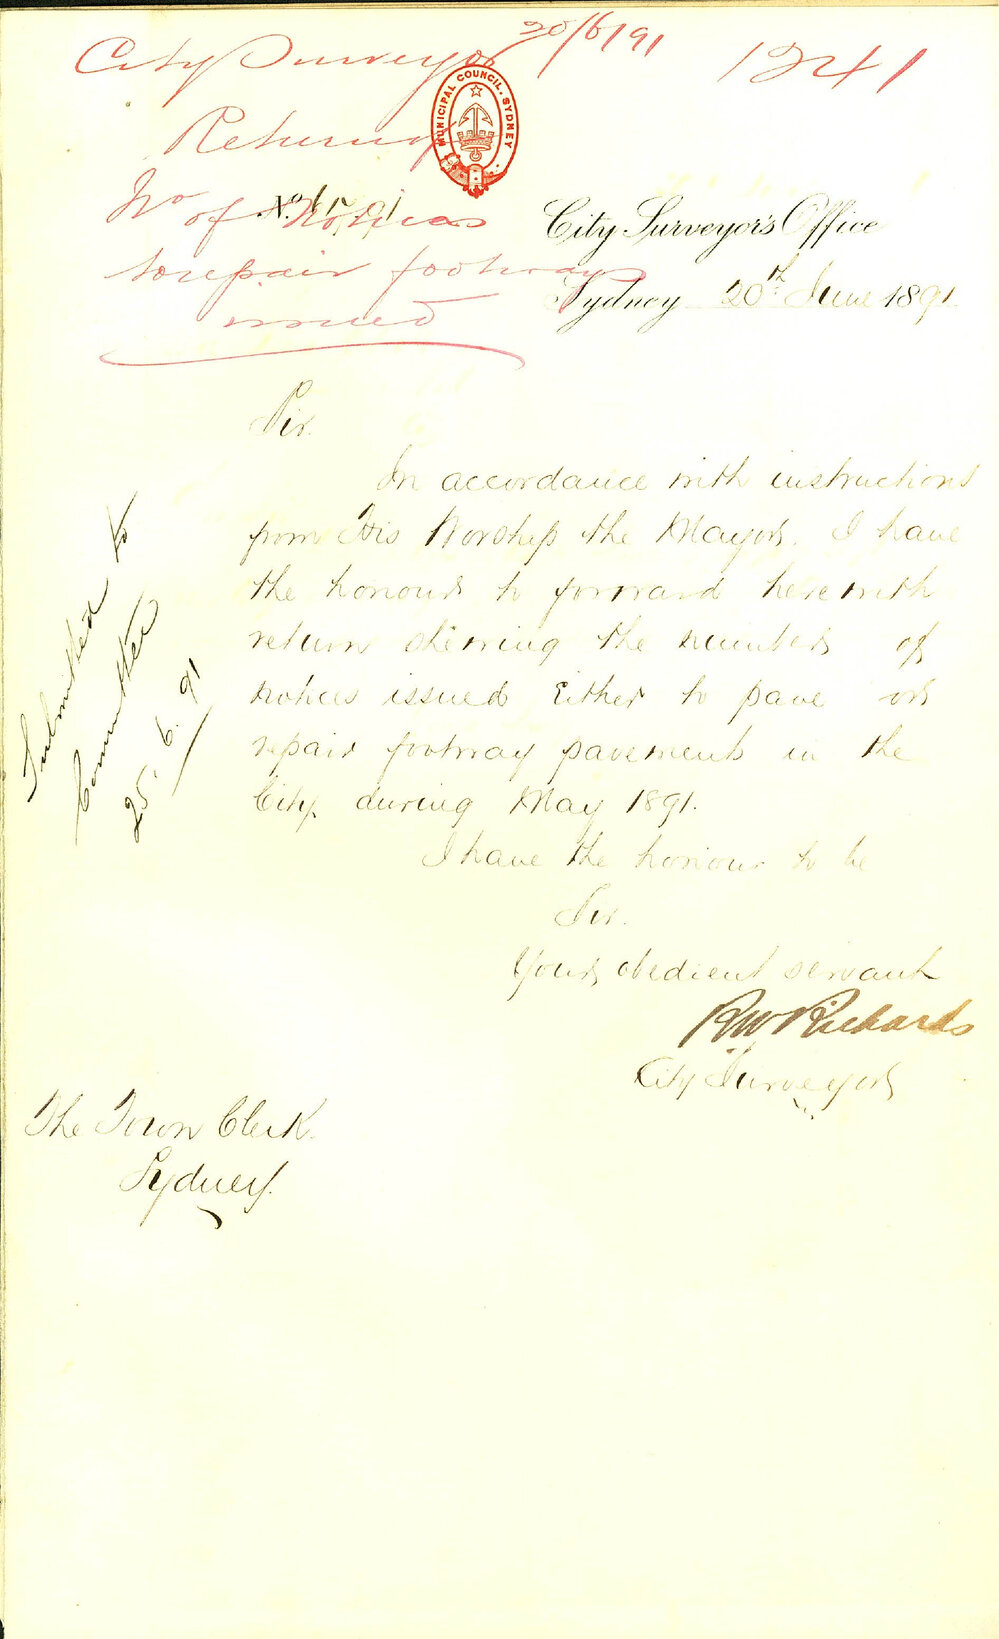 City Surveyor 20/6/91
1241
Returning
No of Notices
to repair footways
issued
MUNICIPAL COUNCIL. SYDNEY
No.
91
City Surveyor's Office
Sydney 20th June 1891
Sir.
In accordance with instructions
from His Worship the Mayor. I have
the honour to forward herewith
return shewing the number of
notices issued Either to pave or
repair footway pavements in the
City during May 1891.
I have the honour to be
Sir.
Your obedient servant
RW Richards
City Surveyor
The Town Clerk.
Sydney.
Submitted to
Committee
25.6.91